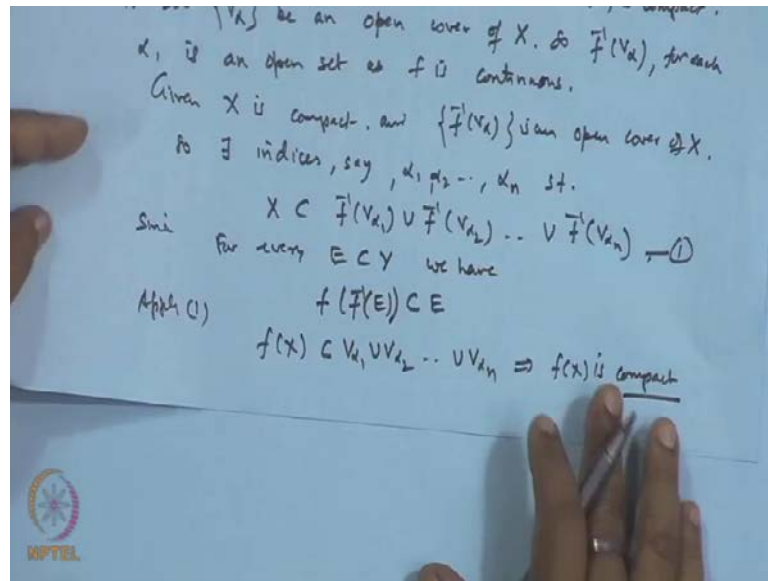 {Vα} be an open cover of X. So f̄¹(Vα), for each
α, is an open set as f is continuous.
Given X is compact. and {f̄¹(Vα)} is an open cover of X.
So ∃ indices, say, α₁, α₂ .., αₙ st.
X ⊂ f̄¹(Vα₁) ∪ f̄¹(Vα₂) .. ∪ f̄¹(Vαₙ) —①
Since For every E ⊂ Y we have
f(f̄¹(E)) ⊂ E
Apply (1)
f(X) ⊂ Vα₁ ∪ Vα₂ .. ∪ Vαₙ ⇒ f(X) is compact
NPTEL